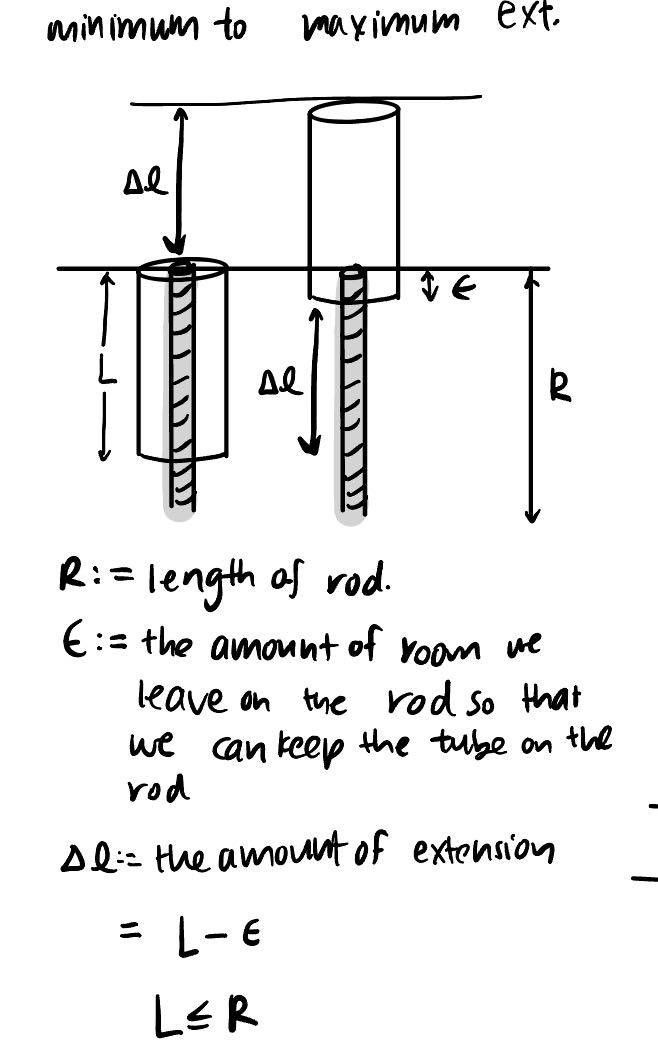 minimum to maximum ext.
Δl
L
Δl
ϵ
R
R := length of rod.
ϵ := the amount of room we
leave on the rod so that
we can keep the tube on the
rod
Δl := the amount of extension
= L - ϵ
L ≤ R